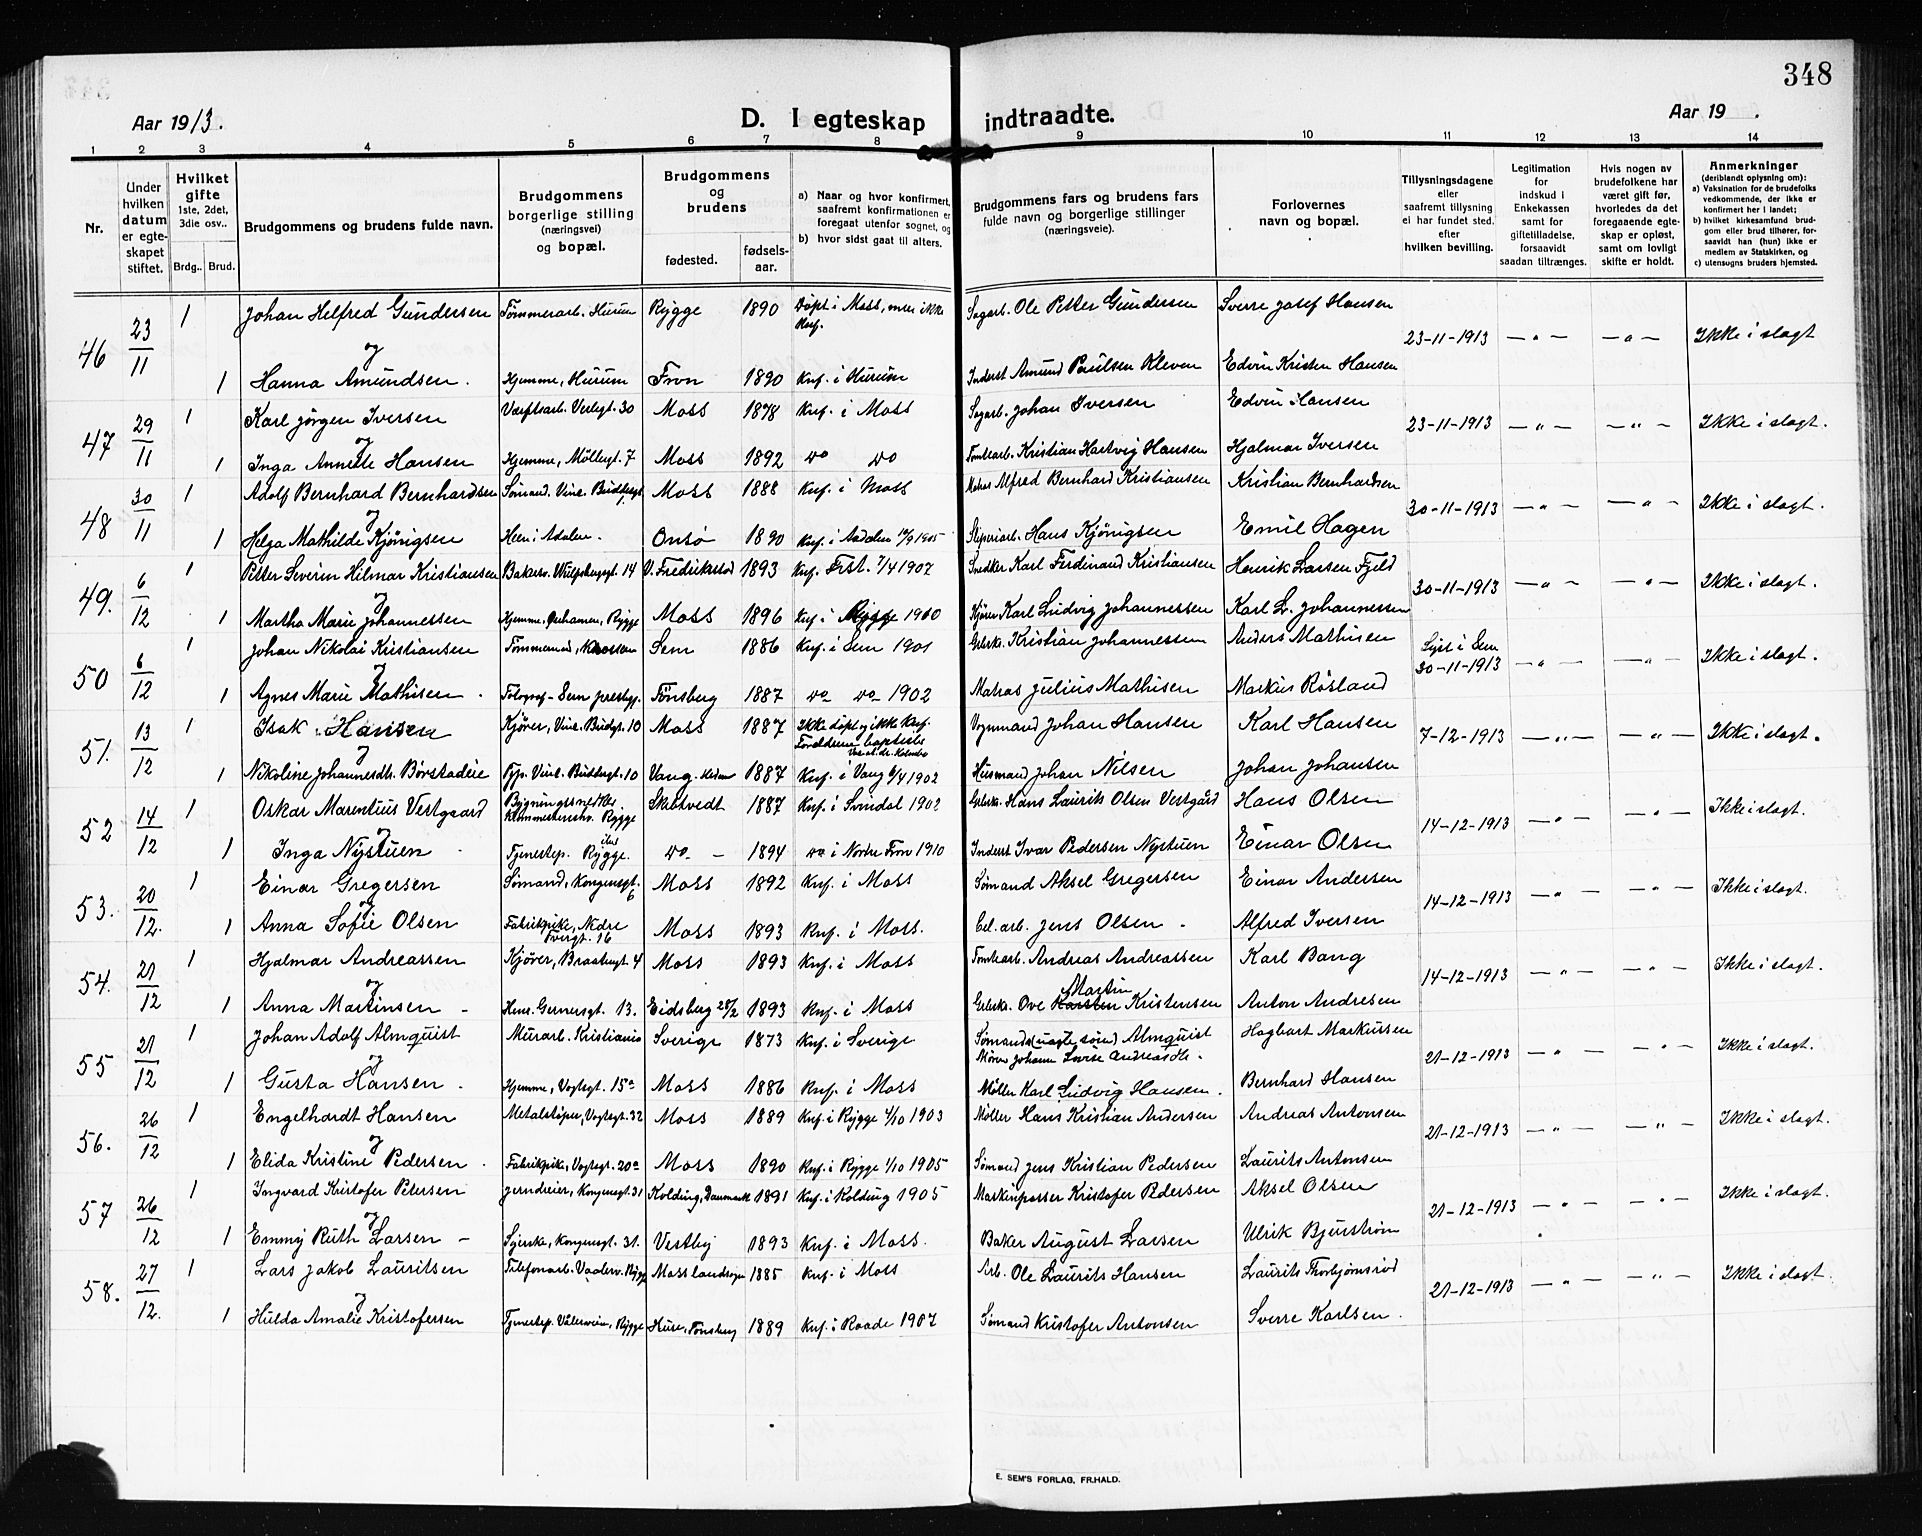 348
Aar 1913.
D. I egteskap indtraadte.
Aar 19 .
1 2 3 4 5 6 7 8 9 10 11 12 13 14
Nr.
Under hvilken datum er egteskapet stiftet.
Hvilket gifte 1ste, 2det, 3die osv..
Brdg.. Brud.
Brudgommens og brudens fulde navn.
Brudgommens borgerlige stilling (næringsvei) og bopæl.
Brudgommens og brudens
fødested. fødsels-aar.
a) Naar og hvor konfirmert, saafremt konfirmationen er foregaat utenfor sognet, og
b) hvor sidst gaat til alters.
Brudgommens fars og brudens fars fulde navn og borgerlige stillinger (næringsveie).
Forlovernes navn og bopæl.
Tillysningsdagene eller saafremt tillysning ei har fundet sted. efter hvilken bevilling.
Legitimation for indskud i Enkekassen samt for giftetilladelse, forsaavidt saadan tiltrænges.
Hvis nogen av brudefolkene har været gift før, hvorledes da det foregaaende egteskap er opløst, samt om lovligt skifte er holdt.
Anmerkninger (deriblandt oplysning om): a) Vaksination for de brudefolks vedkommende, der ikke er konfirmert her i landet; b) hvilket kirkesamfund brudgom eller brud tilhører, forsaavidt han (hun) ikke er medlem av Statskirken, og c) utensogns bruders hjemsted.
46 23/11 1 Johan Helfred Gundersen Tømmerarb. Hurum Rygge 1890 Døpt i Moss, men ikke Knf. Sagarb. Ole Petter Gundersen Sverre Josef Hansen 23-11-1913 — " — — " — Ikke i slagt
og
1 Hanna Amundsen. Hjemme, Hurum Fron 1890 Knf. i Hurum Inderst Amund Paulsen Kleven Edvin Kristen Hansen
47 29/11 1 Karl Jörgen Iversen Værftsarb. Verlegt. 30 Moss 1878 Knf. i Moss Sagarb. Johan Iversen Edvin Hansen 23-11-1913 — " — — " — Ikke i slagt.
og
1 Inga Annette Hansen Hjemme, Møllergt. 7 Moss 1892 do do Tomtearb. Kristian Hartvig Hansen Hjalmar Iversen
48 30/11 1 Adolf Bernhard Bernhardsen Sømand. Vinc. Budbergt. Moss 1888 Knf. i Moss Matros Alfred Bernhard Kristiansen Kristian Bernhardsen 30-11-1913 — " — — " — Ikke i slagt.
og
1 Helga Mathilde Kjönigsen Heen i Adalen. Onsø 1890 Knf. i Aadalen 1905 Sliperiarb. Hans Kjönigsen Emil Hagen
49. 6/12 1 Petter Severin Hilmar Kristiansen Bakersv. Wulfsbergsgt. 14 V. Fredrikstad 1893 Knf. Frst. 7/4 1907 Snedker Karl Ferdinand Kristiansen Henrik Larsen Fjeld 30-11-1913 — " — — " — Ikke i slagt.
og
1 Martha Marie Johannessen Hjemme, Rygge Moss 1896 Knf. i Rygge 1910 Kjörer Karl Ludvig Johannessen Karl L. Johannessen
50 6/12 1 Johan Nikolai Kristiansen Tømmermand, Sem 1886 Knf. i Sem 1901 Gbrsk. Kristian Johannessen Anders Mathisen Lyst i Sem 30-11-1913 — " — — " — Ikke i slagt.
og
1 Agnes Marie Mathisen. Fotograf - Sem prestegj. Tønsberg 1887 do do 1902 Matros Julius Mathisen Markus Røsland
51. 13/12 1 Isak Hansen Kjörer, Vinc. Budgt. 10 Moss 1887 Ikke döpt og ikke Knf. Forældrene baptister Vognmand Johan Hansen Karl Hansen 7-12-1913 — " — — " — Ikke i slagt.
og
1 Nikoline Johannesdt. Börstadeie Tjp. Vinc. Budbergt. 10 Vang. Hedem 1887 Knf. i Vang 6/4 1902 Husmand Johan Nilsen Johan Johansen
52 14/12 1 Oskar Marentius Vestgaard Bygningssnedker. Rygge Skibtvedt 1887 Knf. i Svindal 1902 Gbrsk. Hans Laurits Olsen Vestgård Hans Olsen 14-12-1913 — " — " Ikke i slagt.
og
1 Inga Nystuen Tjenestep. Rygge. do - 1894 do i Nordre Fron 1910 Inderst Ivar Pedersen Nystuen Einar Olsen
53. 20/12. 1 Einar Gregersen Sømand, Kongensgt. 6 Moss 1892 Knf. i Moss Sømand Aksel Gregersen Einar Andersen 14-12-1913 — " — — " — Ikke i slagt.
og
1 Anna Sofie Olsen Fabrikpike, Nedre Tvergt. 16 Moss 1893 Knf. i Moss. Cel. arb. Jens Olsen - Alfred Iversen
54. 21/12 1 Hjalmar Andreassen Kjörer, Braatengt. 4 Moss 1893 Knf. i Moss Tomtearb. Andreas Andreassen Karl Bang 14-12-1913 — " — — " — Ikke i slagt.
og
1 Anna Martinsen - Hens. Gernersgt. 13. Eidsberg 28/2 1893 Knf. i Moss Gbrsk. Ove Karsten Martin Kristensen Anton Andresen
55 21/12 1 Johan Adolf Almquist Murarb. Kristiania Sverige 1873 Knf. i Sverige Sømands (uægte søn) Almquist Moren Johanne Lovise Andreasdt. Hagbart Markussen 21-12-1913 — " — — " — Ikke i slagt.
og
1 Gusta Hansen. Hjemme, Vogtsgt. 15a Moss 1886 Knf. i Moss Møller Karl Ludvig Hansen. Bernhard Hansen
56. 26/12 1 Engelhardt Hansen Metalstøper, Vogtsgt. 32 Moss 1889 Knf. i Rygge 4/10 1903 Møller Hans Kristian Andersen Andreas Antonsen 21-12-1913 — " — — " — Ikke i slagt.
og
1 Elida Kristine Pedersen. Fabrikpike, Vogtsgt. 20a Moss 1890 Knf. i Rygge 1/10 1905 Sømand Jens Kristian Pedersen Laurits Antonsen
57 26/12 1 Ingvard Kristofer Petersen Jerndreier, Kongensgt. 31 Kolding, Danmark 1891 Knf. i Kolding 1905 Maskinpasser Kristofer Pedersen Aksel Olsen 21-12-1913 — " — — " — Ikke i slagt.
og
1 Emmy Ruth Larsen - Syerske, Kongensgt. 31. Vestby 1893 Knf. i Moss. Baker August Larsen Ulrik Bjurstrøm
58. 27/12. 1 Lars Jakob Lauritsen Telefonarb. Vaalerv. Rygge Moss landsogn 1885 Knf. i Moss Arb. Ole Laurits Hansen Laurits Thorbjørnsrød 21-12-1913 — " — — " — Ikke i slagt.
og
1 Hulda Amalie Kristofersen Tjenestep. Vålerveien, Rygge Huse, Tønsberg 1889 Knf. i Raade 1907 Sømand Kristofer Antonsen Sverre Karlsen.
E. SEM'S FORLAG, FR.HALD.